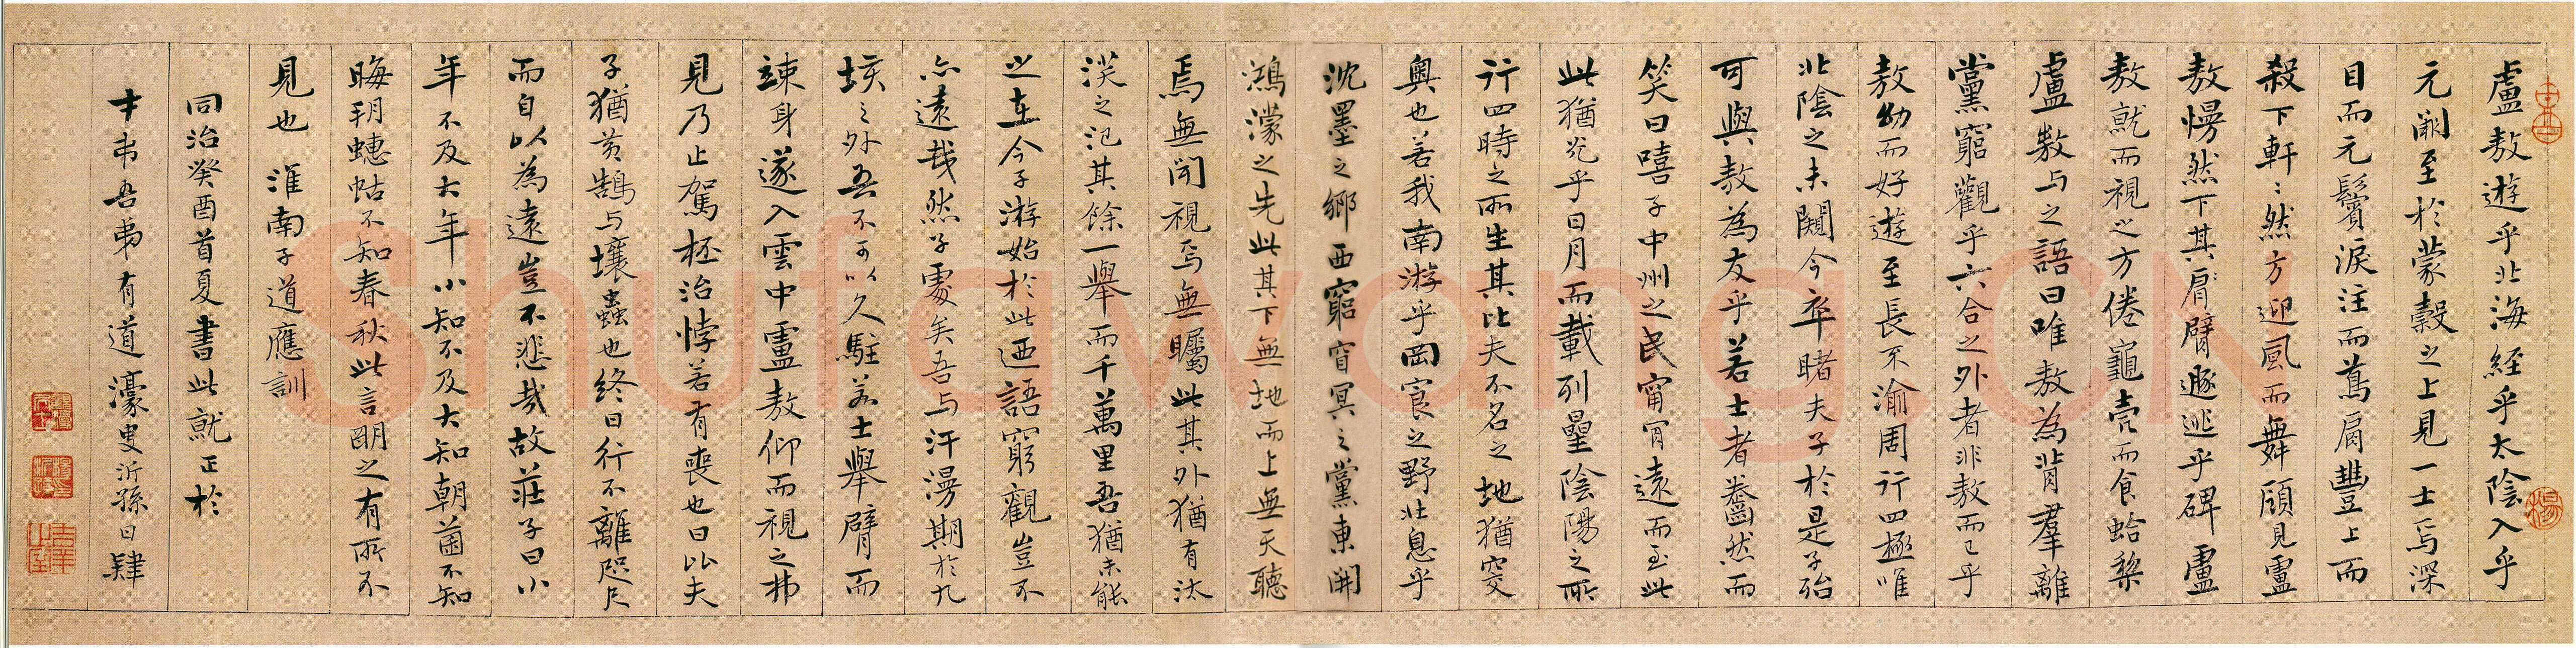 盧敖遊乎北海經乎太陰入乎
元闕至於蒙穀之上見一士焉深
目而元鬢淚注而鳶肩豐上而
殺下軒〻然方迎風而舞顧見盧
敖慢然下其臂遯逃乎碑盧
敖就而視之方倦龜壳而食蛤棃
盧敖与之語曰唯敖為背羣離
黨窮觀乎六合之外者非敖而已乎
敖幼而好遊至長不渝周行四極唯
北陰之未闚今卒睹夫子於是子殆
可與敖為友乎若士者齤然而
笑曰嘻子中州之民甯肎遠而至此
此猶光乎日月而載列星陰陽之所
行四時之所生其比夫不名之地猶窔
奧也若我南游乎岡㝗之野北息乎
沈墨之鄉西窮窅冥之黨東開
鴻濛之先此其下無地而上無天聽
焉無聞視焉無矚此其外猶有汰
沃之汜其餘一舉而千萬里吾猶未能
之在今子游始於此迺語窮觀豈不
亦遠哉然子處矣吾与汗漫期於九
垓之外吾不可以久駐若士舉臂而
竦身遂入雲中盧敖仰而視之弗
見乃止駕柸治悖若有喪也曰比夫
子猶黄鵠与壤蟲也終日行不離咫尺
而自以為遠豈不悲哉故莊子曰小
年不及大年小知不及大知朝菌不知
晦朔蟪蛄不知春秋此言朙之有所不
見也 淮南子道應訓
同治癸酉首夏書此就正於
吾弟有道 濠叟沂孫日肄
楊
Shufawang.CN